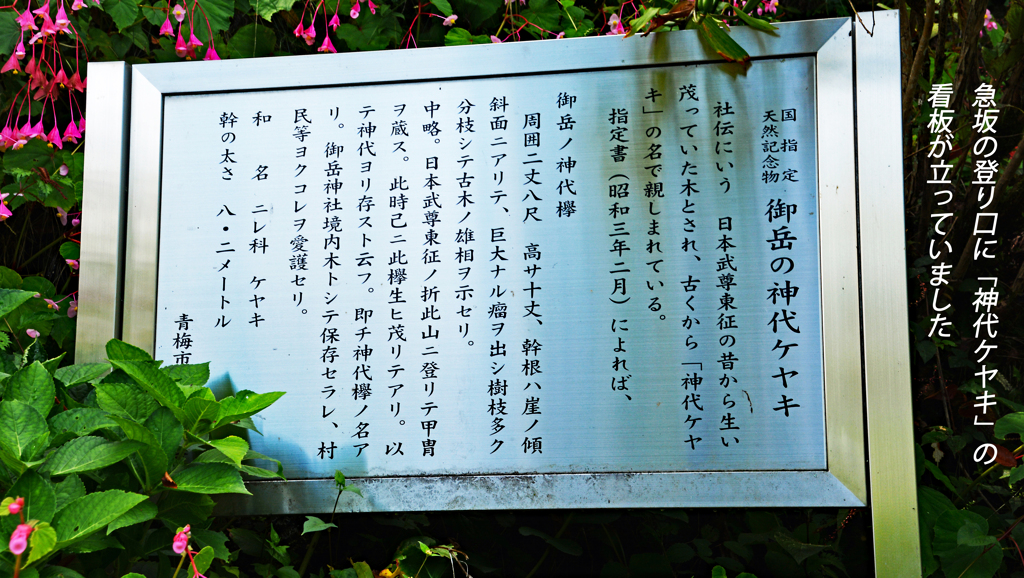 急坂の登り口に「神代ケヤキ」の
看板が立っていました
国指定
天然記念物
御岳の神代ケヤキ
社伝にいう 日本武尊東征の昔から生い
茂っていた木とされ、古くから「神代ケヤ
キ」の名で親しまれている。
指定書(昭和三年二月)によれば、
御岳ノ神代欅
周囲二丈八尺 高サ十丈、幹根ハ崖ノ傾
斜面ニアリテ、巨大ナル瘤ヲ出シ樹枝多ク
分枝シテ古木ノ雄相ヲ示セリ。
中略。日本武尊東征ノ折此山ニ登リテ甲冑
ヲ蔵ス。此時已ニ此欅生ヒ茂リテアリ。以
テ神代ヨリ存スト云フ。即チ神代欅ノ名ア
リ。御岳神社境内木トシテ保存セラレ、村
民等ヨクコレヲ愛護セリ。
和名 ニレ科 ケヤキ
幹の太さ 八・二メートル
青梅市